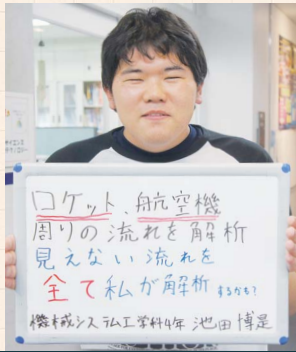 ロケット、航空機
周りの流れを解析
見えない流れを
全て私が解析するかも?
機械システム工学科4年 池田 博是